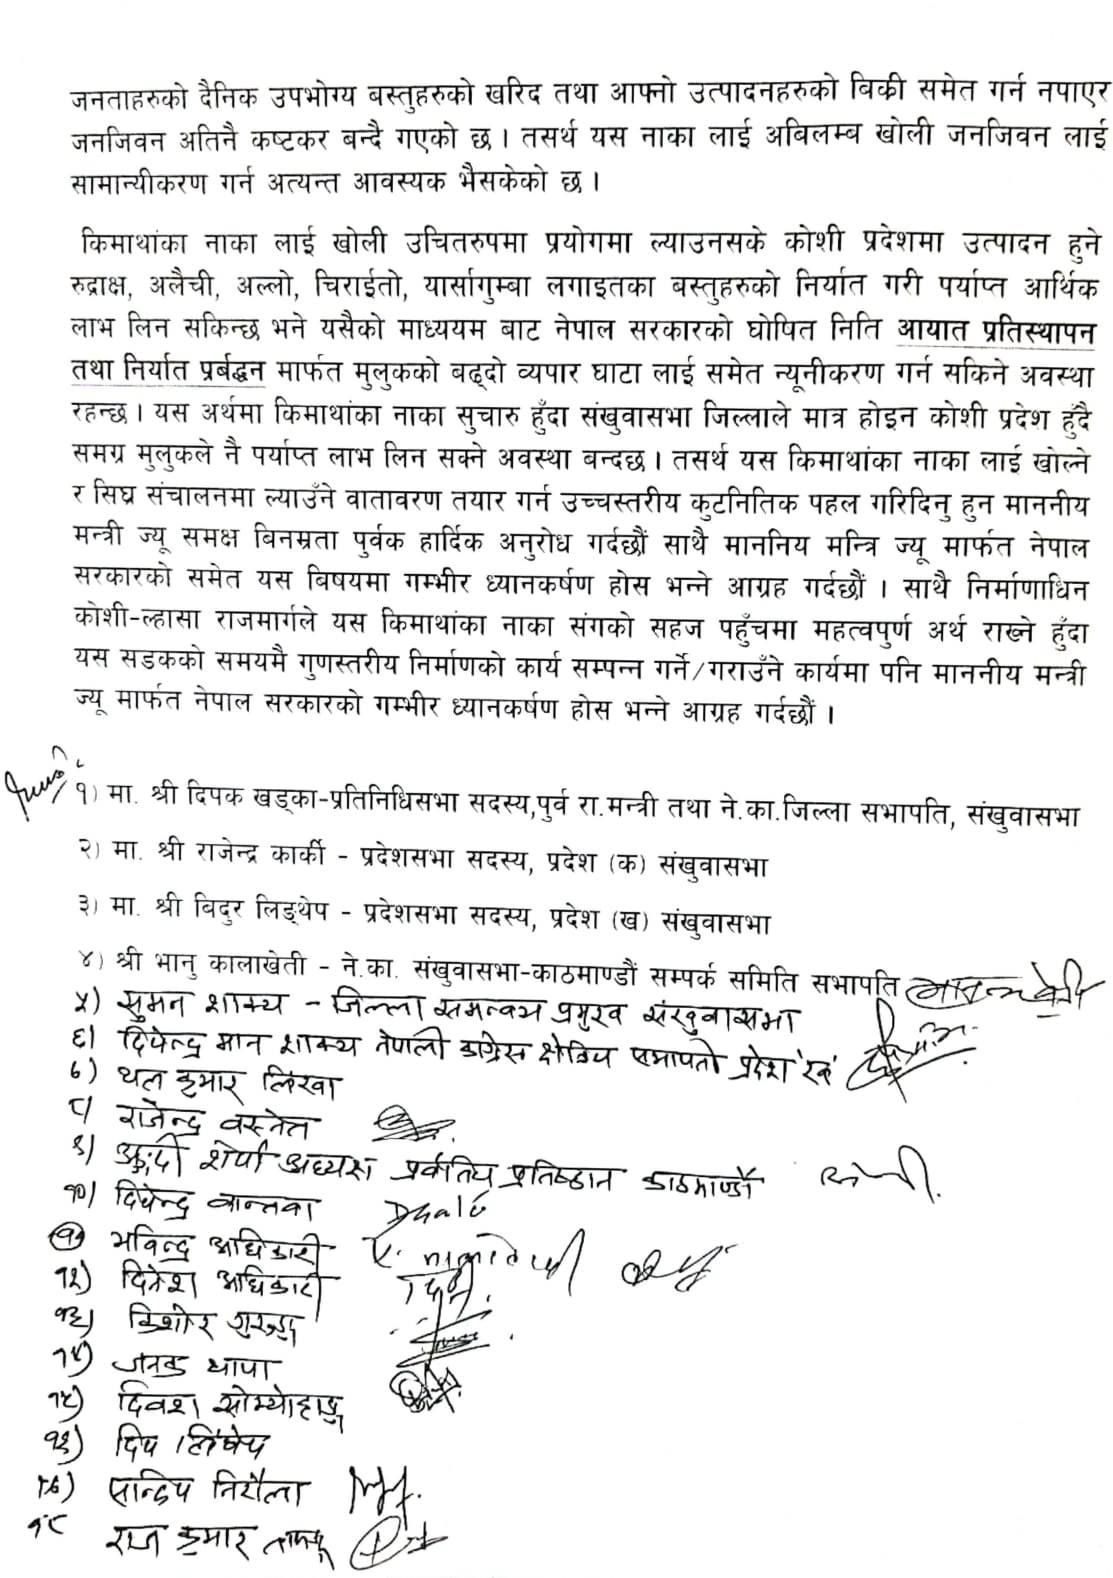 जनताहरुको दैनिक उपभोग्य बस्तुहरुको खरिद तथा आफ्नो उत्पादनहरुको बिक्री समेत गर्न नपाएर
जनजिवन अतिनै कष्टकर बन्दै गएको छ । तसर्थ यस नाका लाई अबिलम्ब खोली जनजिवन लाई
सामान्यीकरण गर्न अत्यन्त आवस्यक भैसकेको छ ।
किमाथांका नाका लाई खोली उचितरुपमा प्रयोगमा ल्याउनसके कोशी प्रदेशमा उत्पादन हुने
रुद्राक्ष, अलैची, अल्लो, चिराईतो, यार्सागुम्बा लगाइतका बस्तुहरुको निर्यात गरी पर्याप्त आर्थिक
लाभ लिन सकिन्छ भने यसैको माध्ययम बाट नेपाल सरकारको घोषित निति आयात प्रतिस्थापन
तथा निर्यात प्रर्बद्धन मार्फत मुलुकको बढ्दो व्यपार घाटा लाई समेत न्यूनीकरण गर्न सकिने अवस्था
रहन्छ । यस अर्थमा किमाथांका नाका सुचारु हुँदा संखुवासभा जिल्लाले मात्र होइन कोशी प्रदेश हुँदै
समग्र मुलुकले नै पर्याप्त लाभ लिन सक्ने अवस्था बन्दछ । तसर्थ यस किमाथांका नाका लाई खोल्ने
र सिघ्र संचालनमा ल्याउँने वातावरण तयार गर्न उच्चस्तरीय कुटनितिक पहल गरिदिनु हुन माननीय
मन्त्री ज्यू समक्ष बिनम्रता पुर्वक हार्दिक अनुरोध गर्दछौं साथै माननिय मन्त्रि ज्यू मार्फत नेपाल
सरकारको समेत यस बिषयमा गम्भीर ध्यानकर्षण होस भन्ने आग्रह गर्दछौं । साथै निर्माणाधिन
कोशी-ल्हासा राजमार्गले यस किमाथांका नाका संगको सहज पहुँचमा महत्वपुर्ण अर्थ राख्ने हुँदा
यस सडकको समयमै गुणस्तरीय निर्माणको कार्य सम्पन्न गर्ने/गराउँने कार्यमा पनि माननीय मन्त्री
ज्यू मार्फत नेपाल सरकारको गम्भीर ध्यानकर्षण होस भन्ने आग्रह गर्दछौं ।
१) मा. श्री दिपक खड्का-प्रतिनिधिसभा सदस्य,पुर्व रा.मन्त्री तथा ने.का.जिल्ला सभापति, संखुवासभा
२) मा. श्री राजेन्द्र कार्की - प्रदेशसभा सदस्य, प्रदेश (क) संखुवासभा
३) मा. श्री बिदुर लिङ्थेप - प्रदेशसभा सदस्य, प्रदेश (ख) संखुवासभा
४) श्री भानु कालाखेती - ने.का. संखुवासभा-काठमाण्डौं सम्पर्क समिति सभापति
५) सुमन शाक्य - जिल्ला समन्वय प्रमुख संखुवासभा
६) दिपेन्द्र मान शाक्य नेपाली कांग्रेस क्षेत्रिय सभापती प्रदेश
७) थल कुमार
८) राजेन्द्र वस्नेत
९) शेर्पा अध्यक्ष प्रतिष्ठान काठमाण्डौं
१०) दिपेन्द्र
११ भविन्द्र अधिकारी
१२) दिनेश अधिकारी
१३) किशोर गुरुङ्ग
१४) जनक थापा
१५) दिवश
१६) दिप लिंथेप
१७) सन्दिप निरौला
१८ राज कुमार